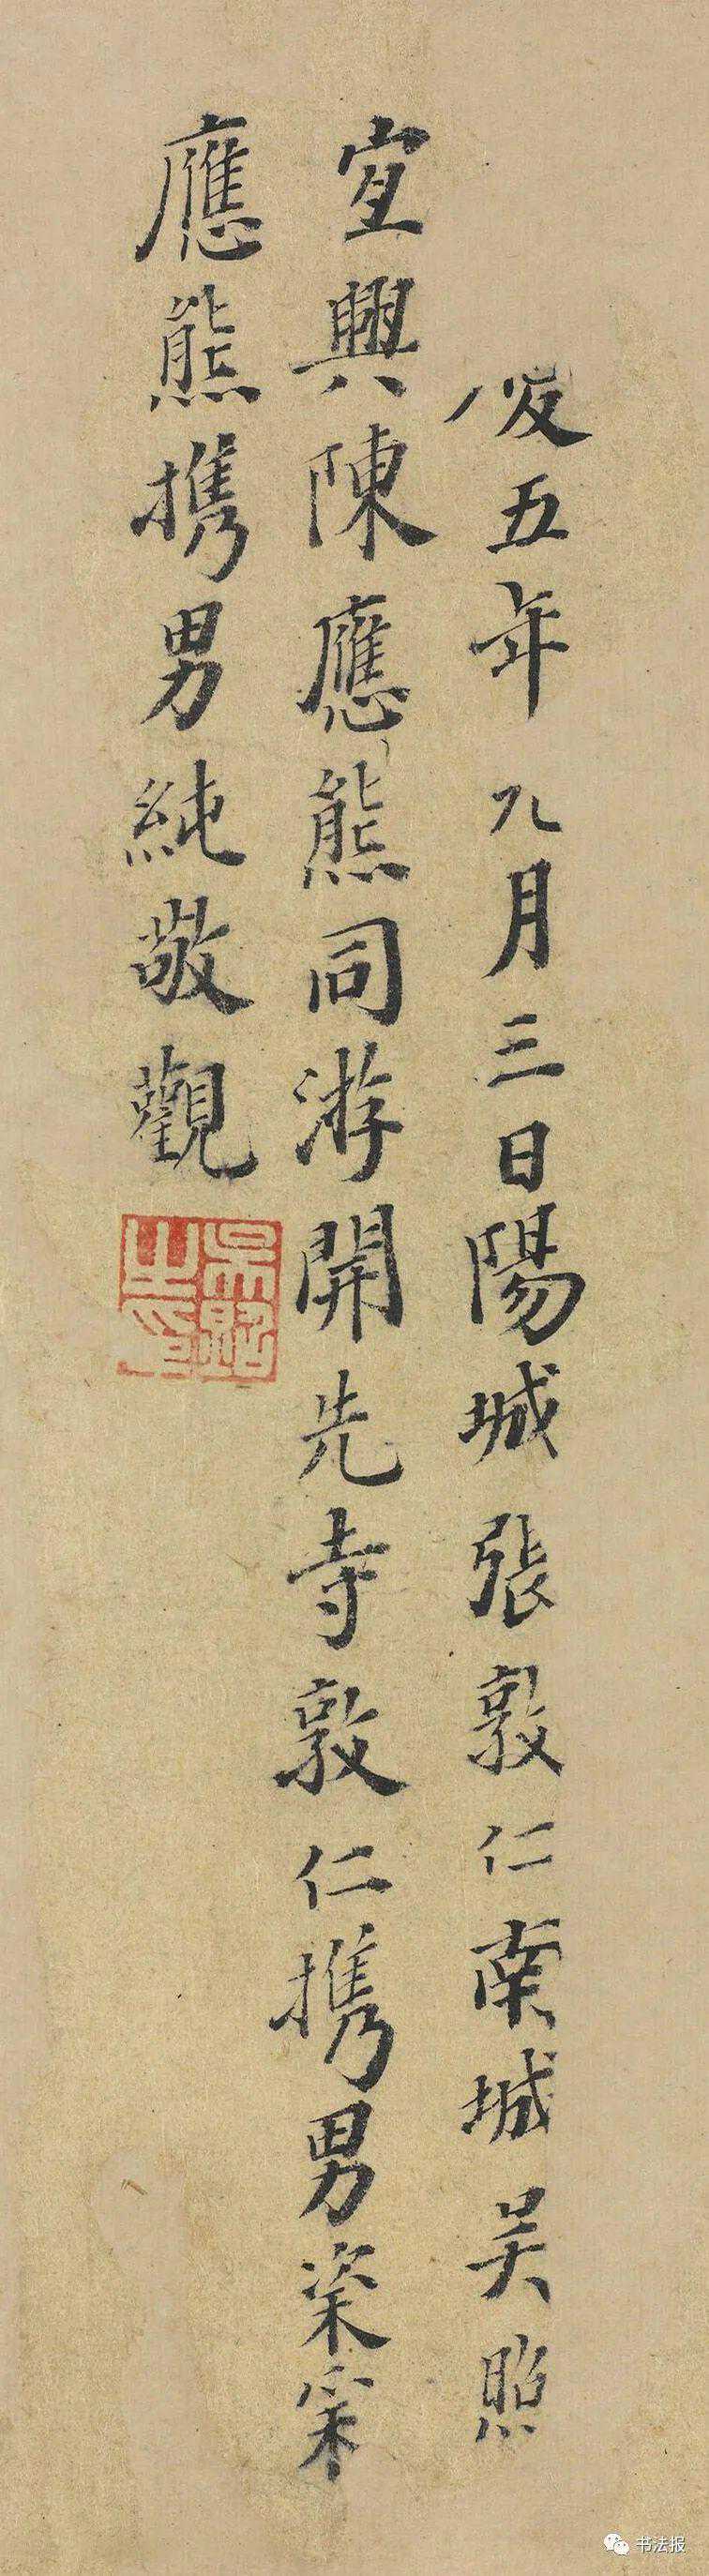 五年九月三日陽城張敦仁南城吴照
宜興陳應熊同游開先寺敦仁携男
應熊携男純敬觀
吳照之印
书法报